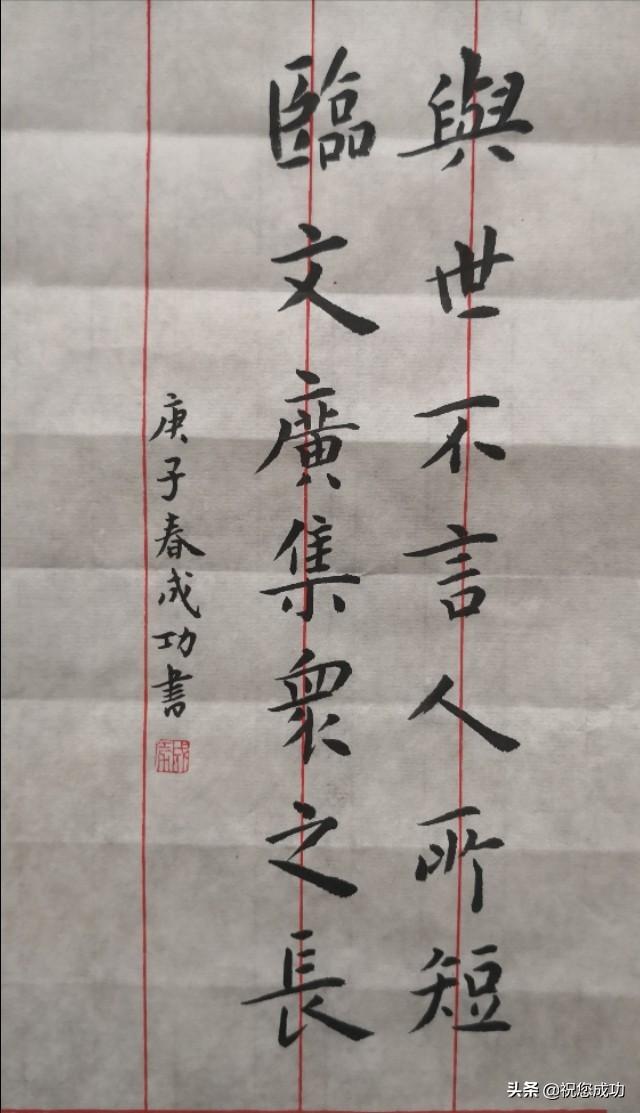 與世不言人所短
臨文廣集衆之長
庚子春成功書
头条 @祝您成功